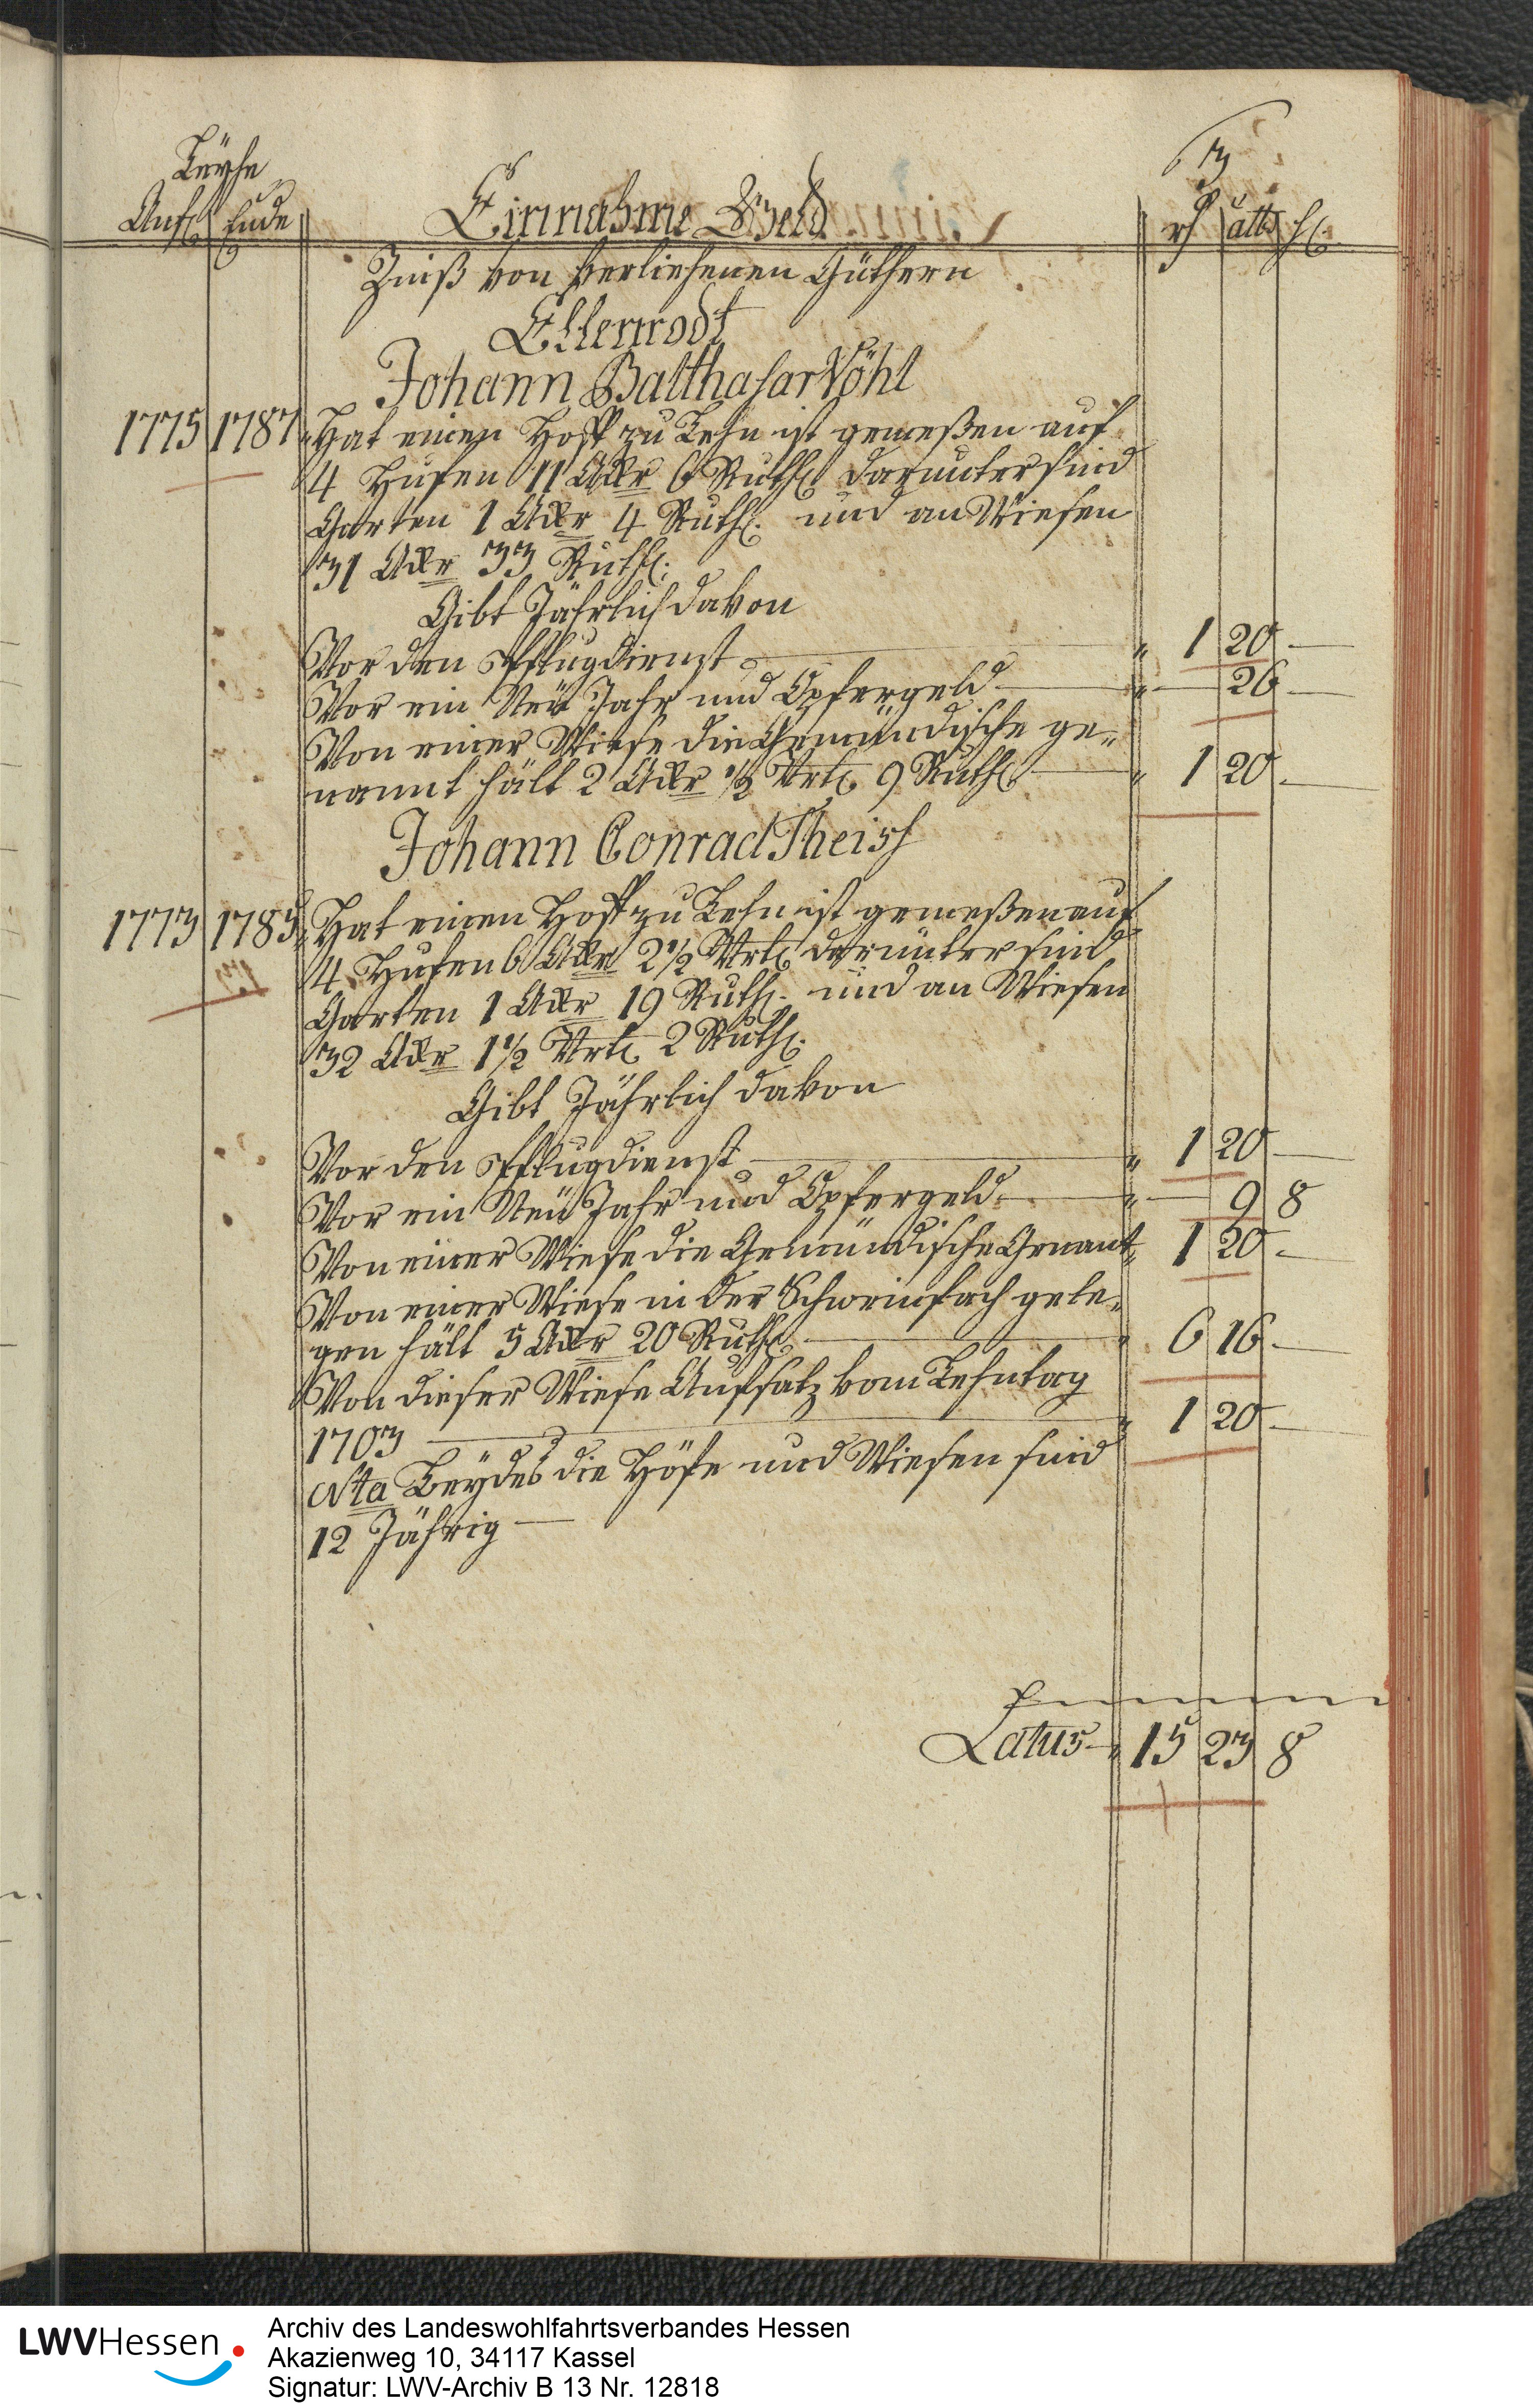 3
Leyhe
Anf. Ende Einnahme Geld rh albs hl.
Zinß von verliehenen Güthern
Ellenrodt
Johann Balthasar Vöhl
1775 1787 Hat einen Hoff zu Lehn ist gemeßen auf
4 Hufen 11 Akr 6 Ruth. darunter sind
Garten 1 Akr 4 Ruth. und an Wiesen
31 Akr 33 Ruth.
Gibt Jährlich davon
Vor den Pflugdienst — " 1 20 —
Vor ein Neü Jahr und Opfergeld — " — 26 —
Von einer Wiese die Gemündische ge-
nannt hält 2 Akr ½ Vrtl. 9 Ruth. — " 1 20 —
Johann Conrad Theis
1773 1785 Hat einen Hoff zu Lehn ist gemeßen auf
4 Hufen 6 Akr 2½ Vrtl. darunter sind
Garten 1 Akr 19 Ruth. und an Wiesen
32 Akr 1½ Vrtl. 2 Ruth.
Gibt Jährlich davon
Vor den Pflugdienst — " 1 20 —
Vor ein Neü Jahr und Opfergeld — " — 9 8
Von einer Wiese die Gemündische Genant " 1 20 —
Von einer Wiese in der Schweinfach gele-
gen hält 5 Akr 20 Ruth. — " 6 16 —
Von dieser Wiese Auffsatz vom Lehntag
1703 — " 1 20 —
Nta Beydes die Höfe und Wiesen sind
12 Jährig —
Latus " 15 23 8
LWVHessen
Archiv des Landeswohlfahrtsverbandes Hessen
Akazienweg 10, 34117 Kassel
Signatur: LWV-Archiv B 13 Nr. 12818